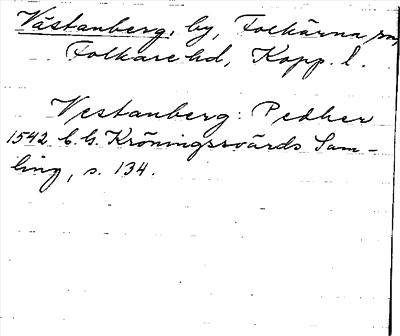 Västanberg, by, Folkärna sn,
Folkare hd, Kopp. l.
Vestanberg: Pedher
1542 C. G. Kröningsvärds Sam-
ling, s. 134.